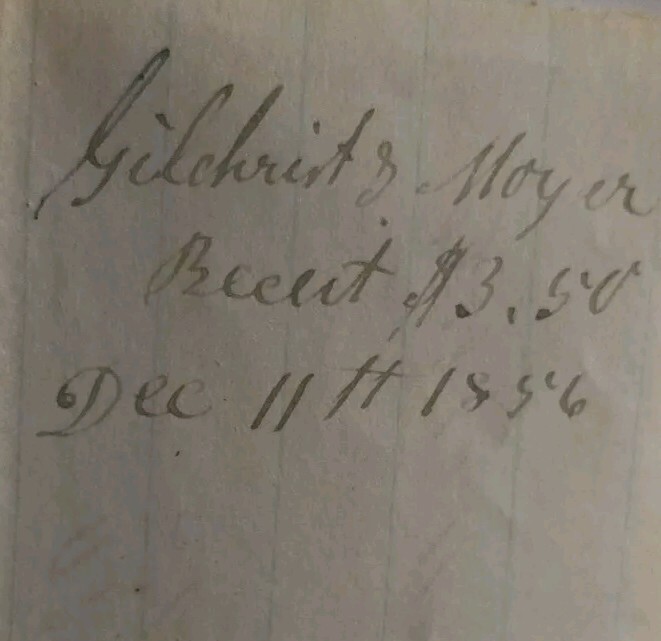 Gilchrist & Moyer
Receit $3.50
Dec 11th 1856